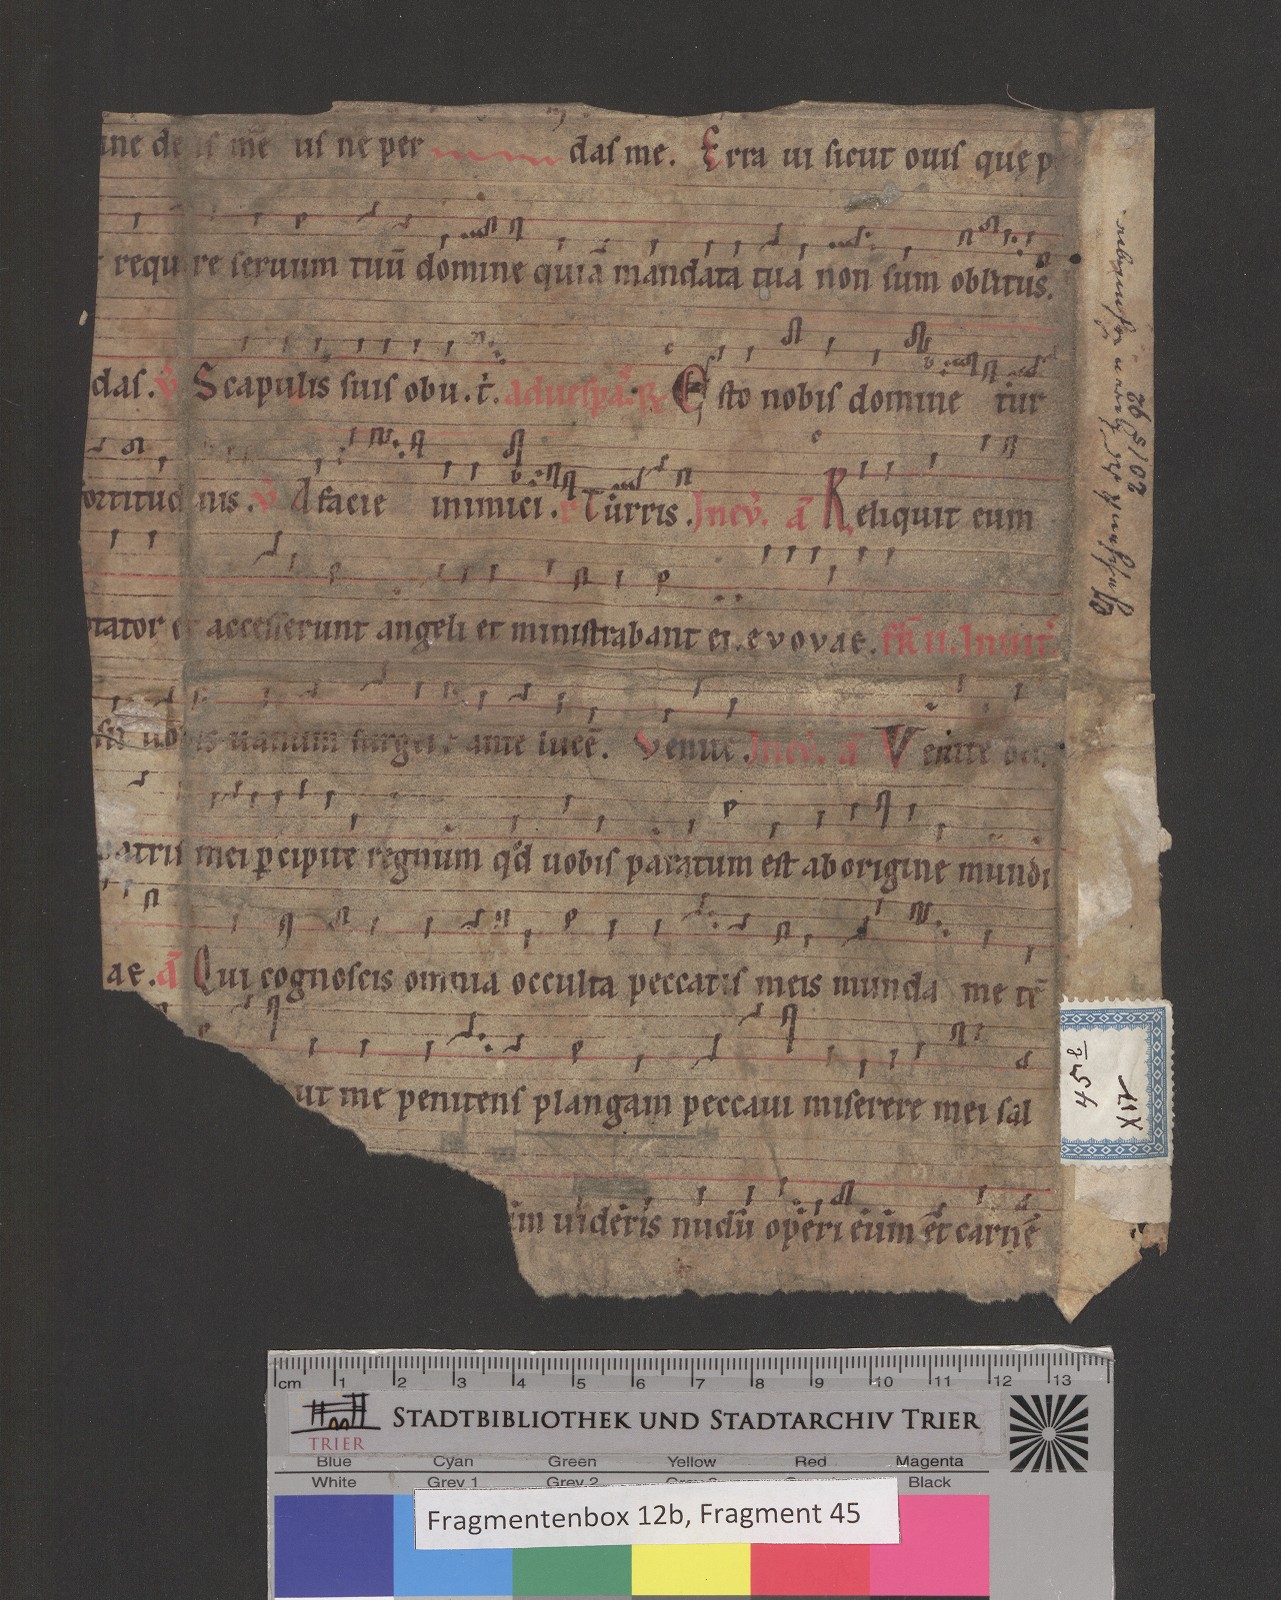 ine de is me us ne per das me. Erra ui sicut ouis que p
requi re seruum tuū domine quia mandata tua non sum oblitus.
das. v̄ Scapulis suis obu.t̄. ad uespāˢ. R̄ Esto nobis domine tur
fortitudinis. v̄ A facie inimici. r Turris. In eu̅. a̅ Reliquit eum
tator et accesserunt angeli et ministrabant ei. evovae. fr̄ ii. Inuit̄.
sit uobis uanum surgere ante lucē. Venite. In eu̅. a̅ Venite ben
patris mei p̄cipite regnum qd̄ uobis paratum est ab origine mundi
ae. a̅ Qui cognoscis omnia occulta peccatis meis munda me tē
ut me penitens plangam peccaui miserere mei sal
im uideris nudū operi eum et carnē
20/5 92
45 8
XIV
cm 1 2 3 4 5 6 7 8 9 10 11 12 13
TRIER
STADTBIBLIOTHEK UND STADTARCHIV TRIER
Blue Cyan Green Yellow Red Magenta
White Grey 1 Grey 2 Black
Fragmentenbox 12b, Fragment 45